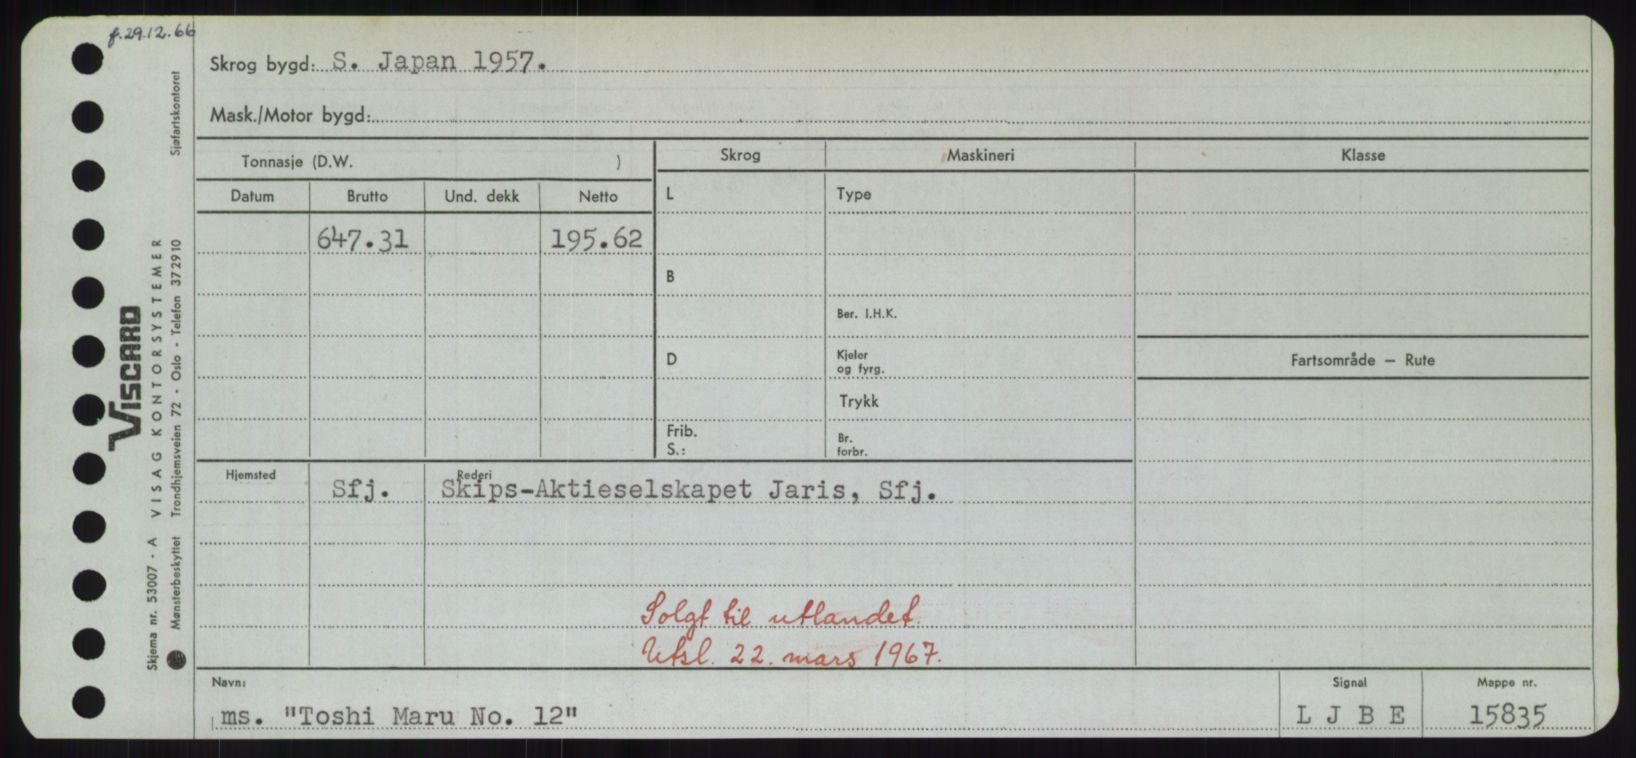 f.29.12.66
Skrog bygd: S. Japan 1957.
Mask./Motor bygd:
Tonnasje (D.W. )
Datum Brutto Und. dekk Netto
647.31 195.62
Skrog Maskineri Klasse
L Type
B
Ber. I.H.K.
D Kjeler
og fyrg.
Trykk
Frib.
S.: Br.
forbr.
Fartsområde — Rute
Hjemsted Rederi
Sfj. Skips-Aktieselskapet Jaris, Sfj.
Solgt til utlandet.
Utsl. 22. mars 1967.
Navn: Signal Mappe nr.
ms. "Toshi Maru No. 12" L J B E 15835
VISCARD
Skjema nr. 53007 - A VISAG KONTORSYSTEMER
Mønsterbeskyttet Trondhjemsveien 72 - Oslo - Telefon 37 29 10 Sjøfartskontoret